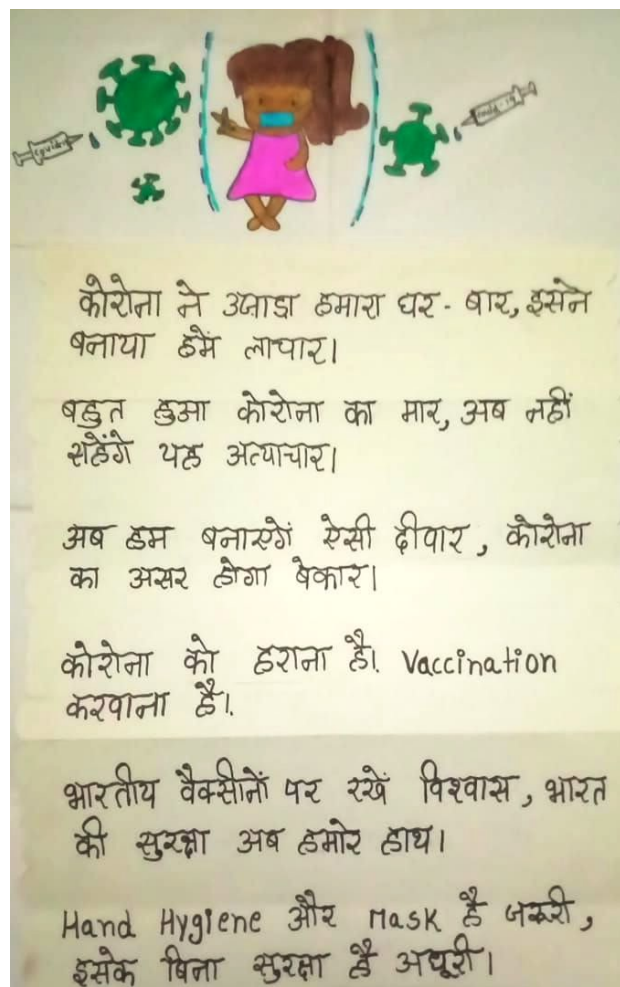 कोरोना ने उजाडा हमारा घर - बार, इसने
बनाया हमें लाचार।
बहुत हुआ कोरोना का मार, अब नहीं
सहेंगे यह अत्याचार।
अब हम बनाएगें ऐसी दीवार, कोरोना
का असर होगा बेकार।
कोरोना को हराना है। Vaccination
करवाना है।
भारतीय वैक्सीनों पर रखें विश्वास, भारत
की सुरक्षा अब हमारे हाथ।
Hand Hygiene और Mask है जरूरी,
इसके बिना सुरक्षा है अधूरी।